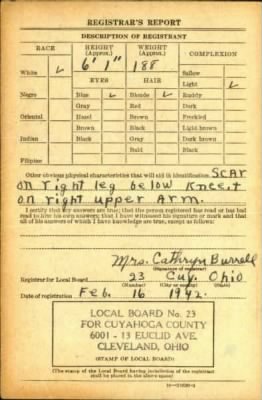 REGISTRAR'S REPORT
DESCRIPTION OF REGISTRANT
RACE HEIGHT (Approx.) WEIGHT (Approx.) COMPLEXION
White ✓ 6' 1" 188 Sallow
EYES HAIR Light ✓
Negro Blue ✓ Blonde ✓ Ruddy
Gray Red Dark
Oriental Hazel Brown Freckled
Brown Black Light brown
Indian Black Gray Dark brown
Bald Black
Filipino
Other obvious physical characteristics that will aid in identification Scar
on right leg below knee +
on right upper Arm.
I certify that my answers are true; that the person registered has read or has had
read to him his own answers; that I have witnessed his signature or mark and that
all of his answers of which I have knowledge are true, except as follows:
Mrs. Cathryn Burrell
(Signature of registrar)
Registrar for Local Board 23 Cuy. Ohio
(Number) (City or county) (State)
Date of registration Feb. 16 1942.
LOCAL BOARD No. 23
FOR CUYAHOGA COUNTY
6001 - 13 EUCLID AVE.
CLEVELAND, OHIO
(STAMP OF LOCAL BOARD)
(The stamp of the Local Board having jurisdiction of the registrant
shall be placed in the above space.)